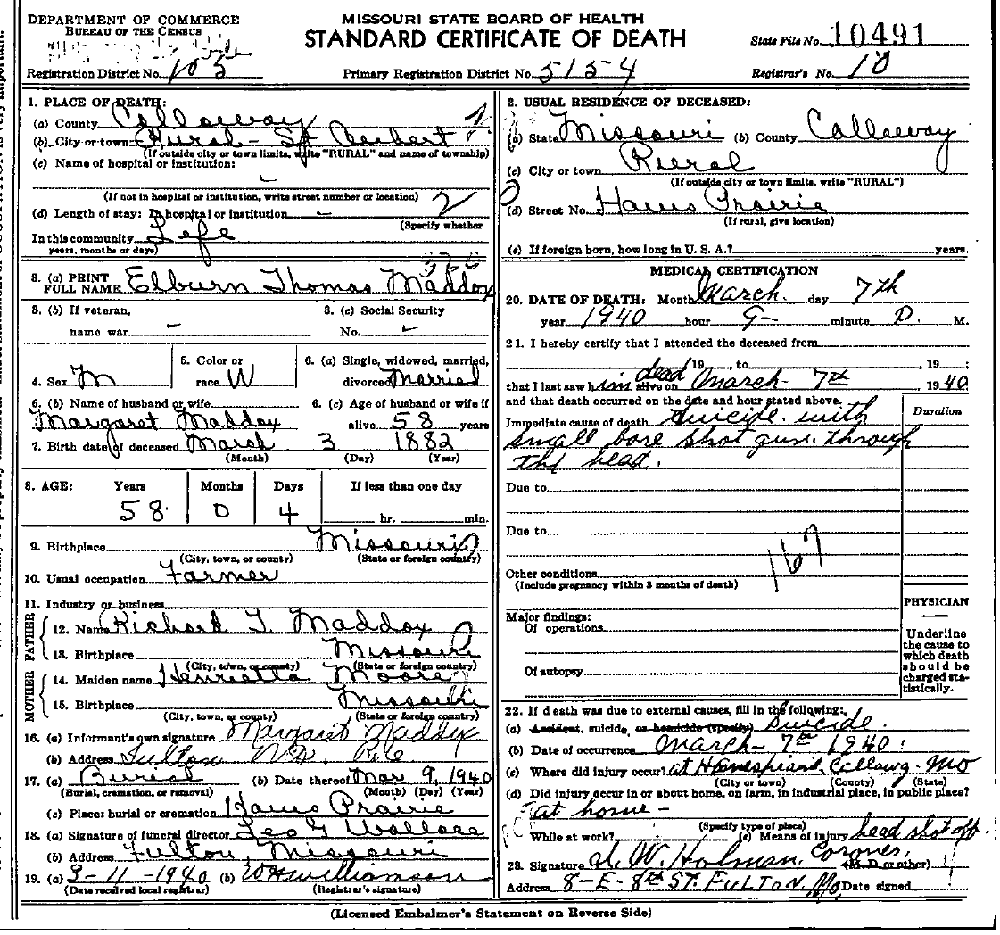 DEPARTMENT OF COMMERCE
BUREAU OF THE CENSUS
MISSOURI STATE BOARD OF HEALTH
STANDARD CERTIFICATE OF DEATH
State File No. 10491
Registration District No. 105
Primary Registration District No. 5154
Registrar's No. 10
1. PLACE OF DEATH:
(a) County Callaway
(b) City or town Rural - St Aubert
(If outside city or town limits, write "RURAL" and name of township)
(c) Name of hospital or institution:
-
(If not in hospital or institution, write street number or location)
(d) Length of stay: In hospital or institution -
(Specify whether
In this community Life
years, months or days)
3. (a) PRINT FULL NAME Elburn Thomas Maddox
3. (b) If veteran, name war -
3. (c) Social Security No. -
4. Sex M
5. Color or race W
6. (a) Single, widowed, married, divorced Married
6. (b) Name of husband or wife Margaret Maddox
6. (c) Age of husband or wife if alive 58 years
7. Birth date of deceased March 3 1882
(Month) (Day) (Year)
8. AGE: Years Months Days If less than one day
58 0 4 hr. min.
9. Birthplace Missouri
(City, town, or county) (State or foreign country)
10. Usual occupation Farmer
11. Industry or business
FATHER
12. Name Richard T. Maddox
13. Birthplace Missouri
(City, town, or county) (State or foreign country)
MOTHER
14. Maiden name Henrietta Moore
15. Birthplace Missouri
(City, town, or county) (State or foreign country)
16. (a) Informant's own signature Margaret Maddox
(b) Address Fulton
17. (a) Burial (b) Date thereof Mar 9, 1940
(Burial, cremation, or removal) (Month) (Day) (Year)
(c) Place: burial or cremation Hams Prairie
18. (a) Signature of funeral director Leo G Wallace
(b) Address Fulton, Missouri
19. (a) 3-11-1940 (b) W H Williamson
(Date received local registrar) (Registrar's signature)
2. USUAL RESIDENCE OF DECEASED:
(a) State Missouri (b) County Callaway
(c) City or town Rural
(If outside city or town limits, write "RURAL")
(d) Street No. Hams Prairie
(If rural, give location)
(e) If foreign born, how long in U. S. A.? years.
MEDICAL CERTIFICATION
20. DATE OF DEATH: Month March day 7th
year 1940 hour 9- minute P. M.
21. I hereby certify that I attended the deceased from
19 to , 19 ;
that I last saw him dead alive on March - 7th 1940
and that death occurred on the date and hour stated above.
Duration
Immediate cause of death Suicide with
small bore shot gun through
the head.
Due to
Due to
167
Other conditions
(Include pregnancy within 3 months of death)
Major findings:
Of operations
Of autopsy
PHYSICIAN
Underline the cause to which death should be charged statistically.
22. If death was due to external causes, fill in the following:
(a) Accident, suicide, or homicide (specify) Suicide.
(b) Date of occurrence March - 7th 1940.
(c) Where did injury occur? at Callawy - Mo
(City or town) (County) (State)
(d) Did injury occur in or about home, on farm, in industrial place, in public place?
at home -
(Specify type of place)
While at work? (e) Means of injury head shot off
23. Signature W. Holman. Coroner.
(M. D. or other)
Address 8-E-8th ST. FULTON, Mo Date signed
(Licensed Embalmer's Statement on Reverse Side)